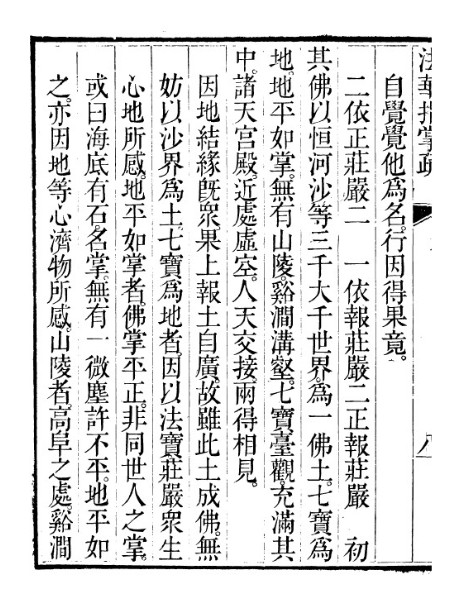 法華指掌疏
八
自覺覺他為名。行因得果竟。
二依正莊嚴二　一依報莊嚴二正報莊嚴　初
其佛以恒河沙等三千大千世界。為一佛土。七寶為
地。地平如掌。無有山陵。谿澗溝壑。七寶臺觀。充滿其
中。諸天宮殿。近處虛空。人天交接。兩得相見。
因地結緣旣衆。果上報土自廣。故雖此土成佛。無
妨以沙界為土。七寶為地者。因以法寶莊嚴衆生
心地所感。地平如掌者。佛掌平正。非同世人之掌。
或曰海底有石。名掌。無有一微塵許不平。地平如
之。亦因地等心濟物所感。山陵者。高阜之處。谿澗